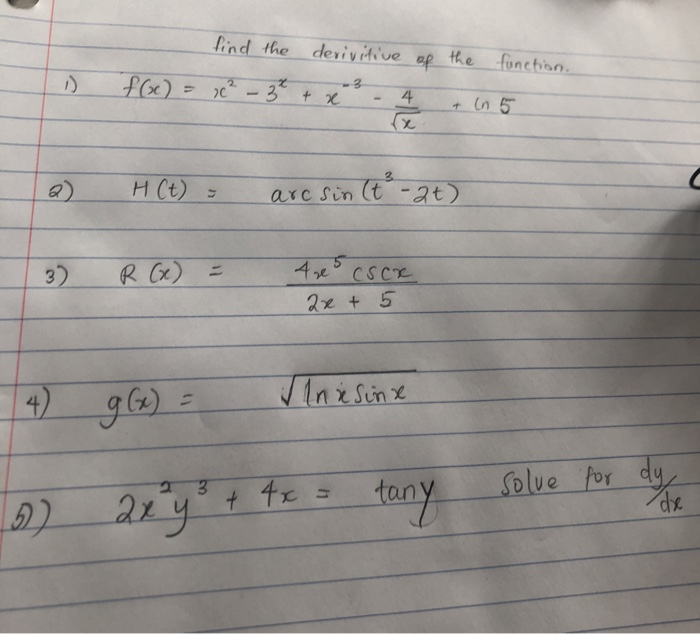 find the derivitive of the function.
1) f(x) = x² - 3ˣ + x⁻³ - 4/√x + ln 5
2) H(t) = arc sin(t³ - 2t)
3) R(x) = 4x⁵ cscx / 2x + 5
4) g(x) = √lnx sinx
5) 2x²y³ + 4x = tany solve for dy/dx